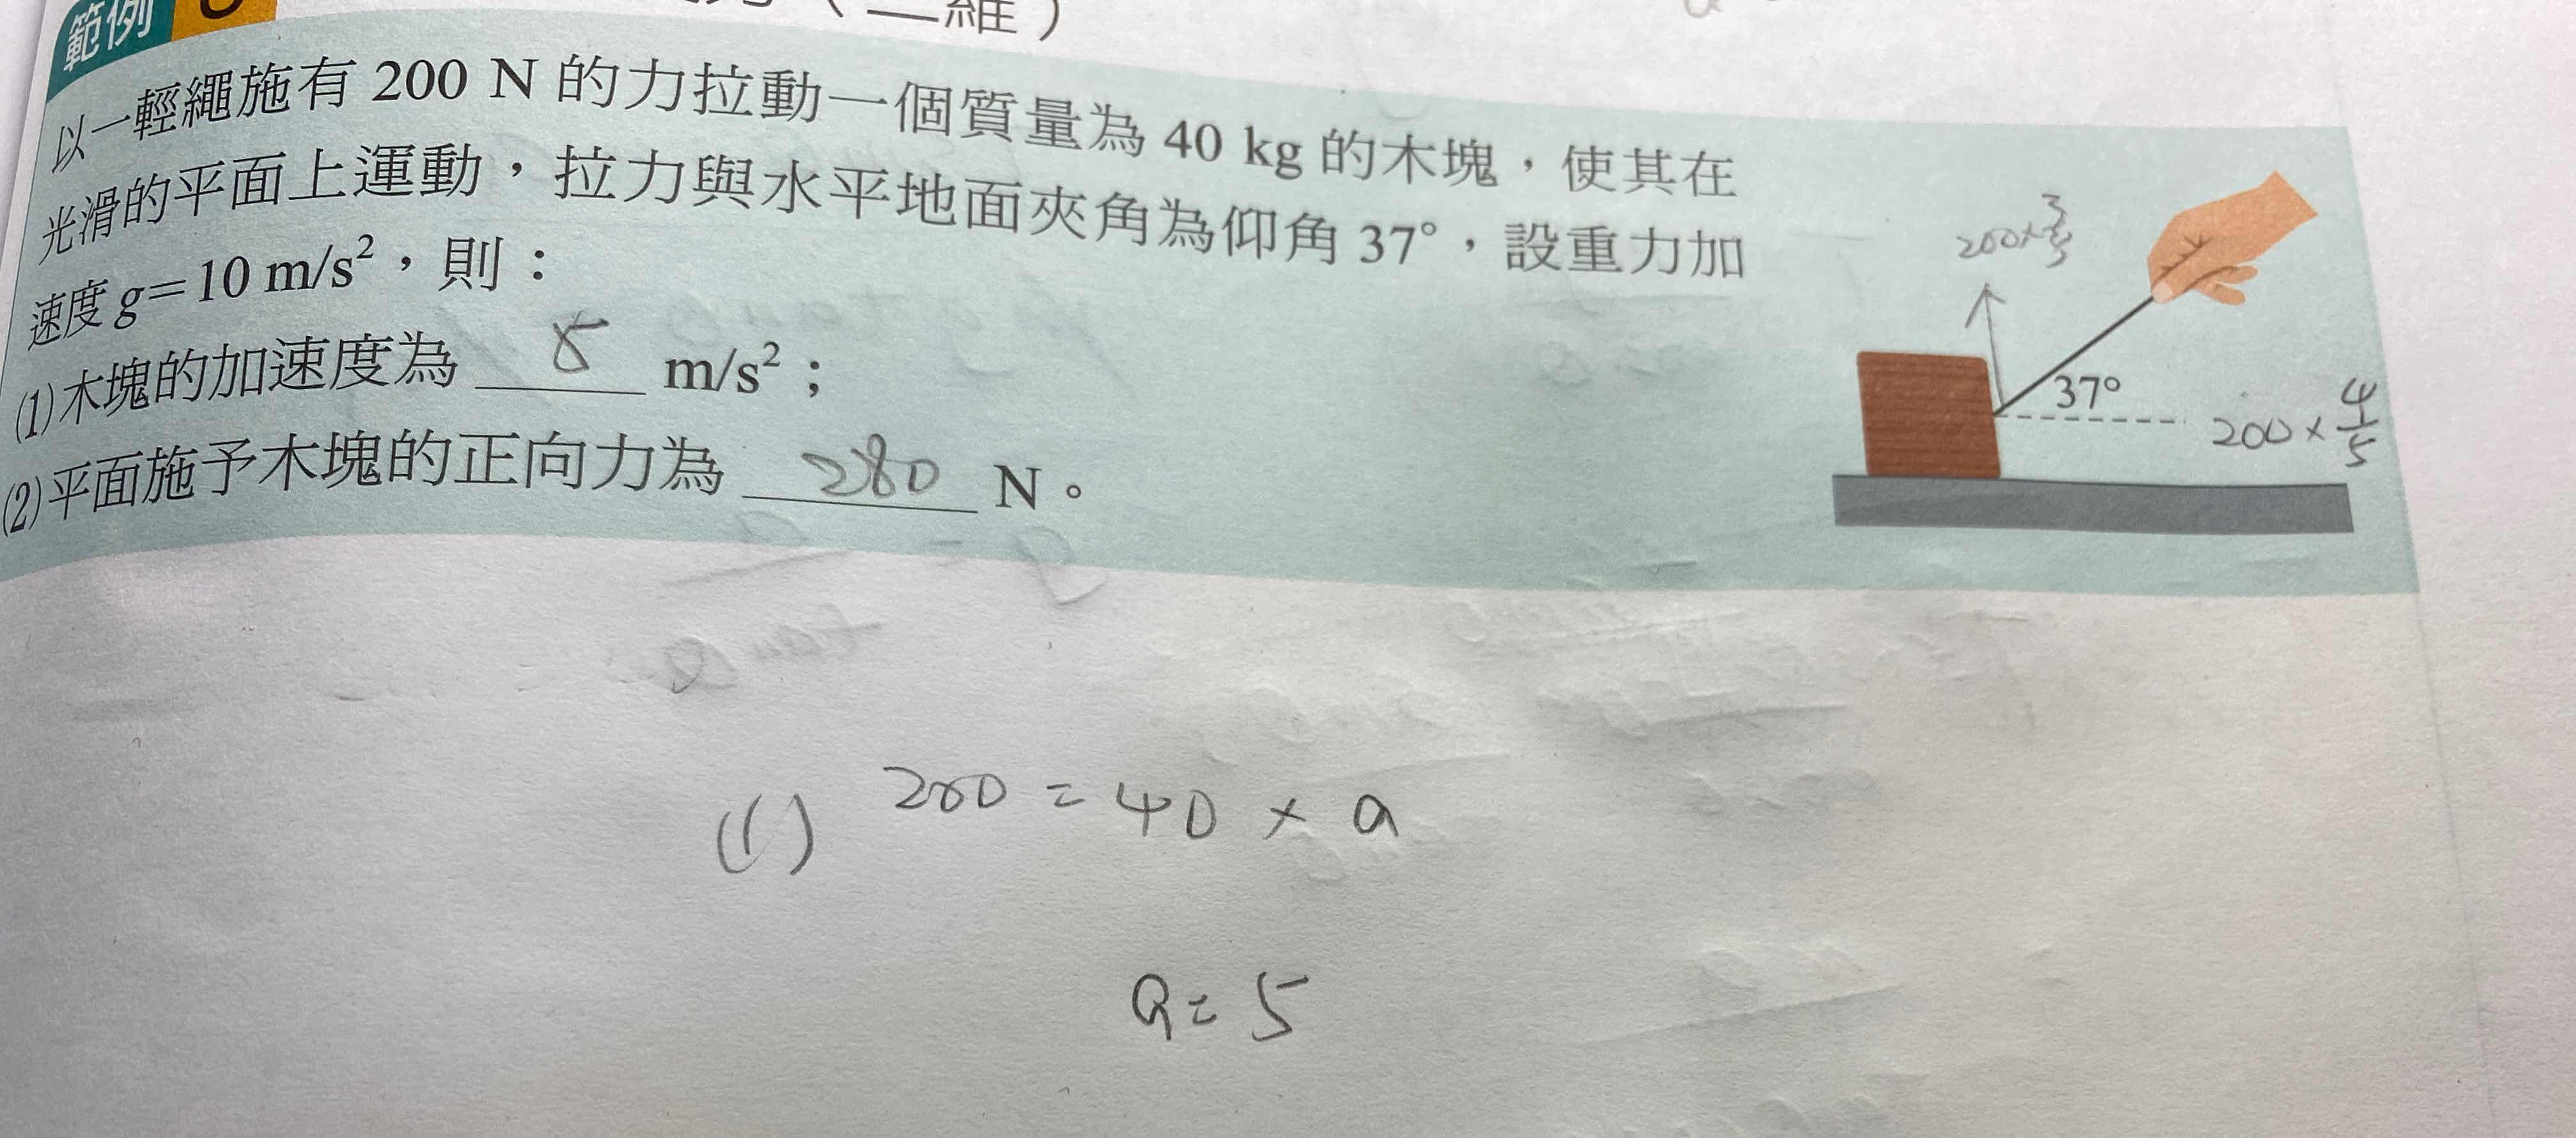 範例
維）
以一輕繩施有 200 N 的力拉動一個質量為 40 kg 的木塊，使其在
光滑的平面上運動，拉力與水平地面夾角為仰角 37°，設重力加
速度 g＝10 m/s²，則：
(1)木塊的加速度為 5 m/s²；
(2)平面施予木塊的正向力為 280 N。
200×3/5
37°
200×4/5
(1) 200 = 40 × a
a = 5